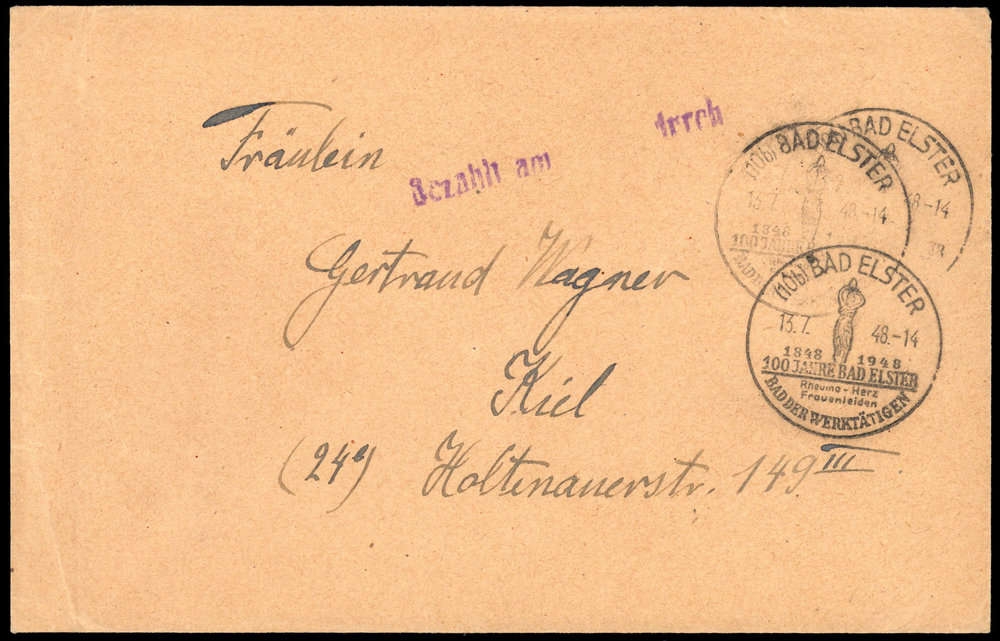 Fräulein
Bezahlt am
Gertraud Wagner
Kiel
(24a) Holtenauerstr. 149 III
(10b) BAD ELSTER
48.-14
(10b) BAD ELSTER
13.7. 48.-14
1848
100 JAHRE
(10b) BAD ELSTER
13.7. 48.-14
1848 1948
100 JAHRE BAD ELSTER
Rheuma - Herz
Frauenleiden
BAD DER WERKTÄTIGEN